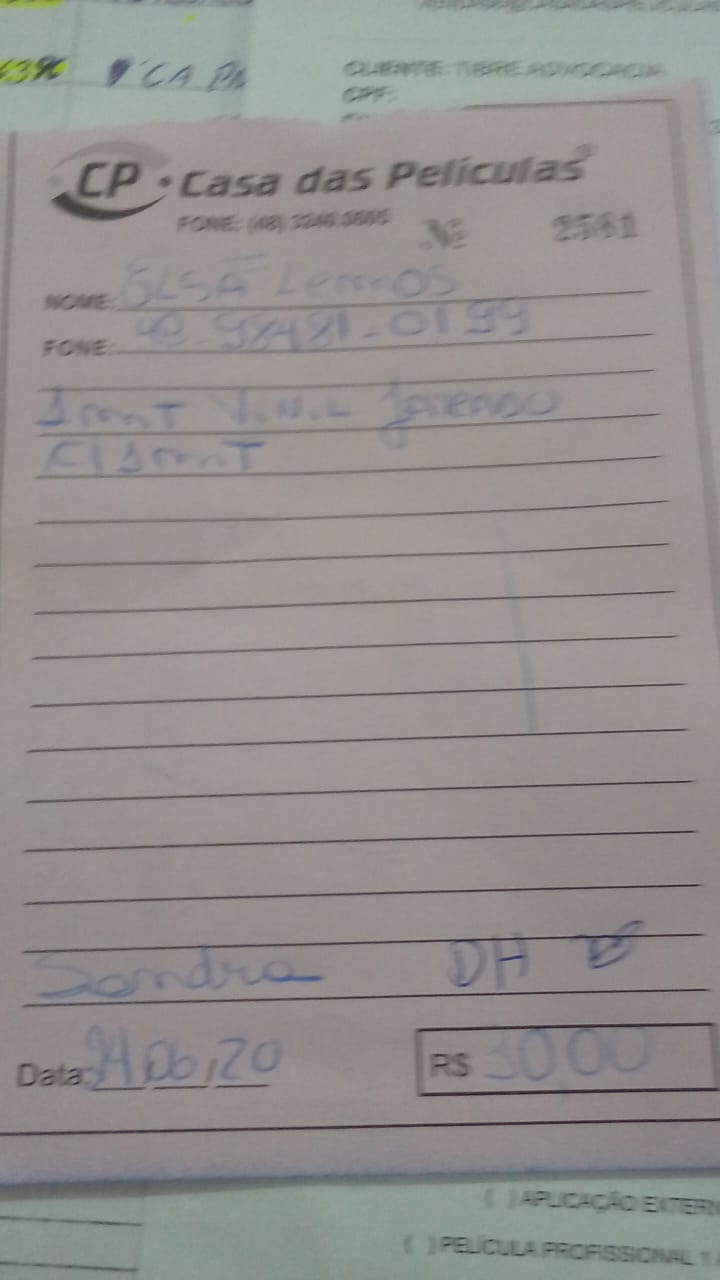 CA
CLIENTE: TIBRE ADVOCACIA
CPF:
CP · Casa das Películas®
FONE: (48) 3240.
Nº 2561
NOME: ELSA Lemos
FONE: 48-98481-0199
1 mT V.N.L
C/ 1 mT
Sandra DH
Data: 24,06,20 R$ 30,00
( ) APLICAÇÃO EXTERN
( ) PELÍCULA PROFISSIONAL